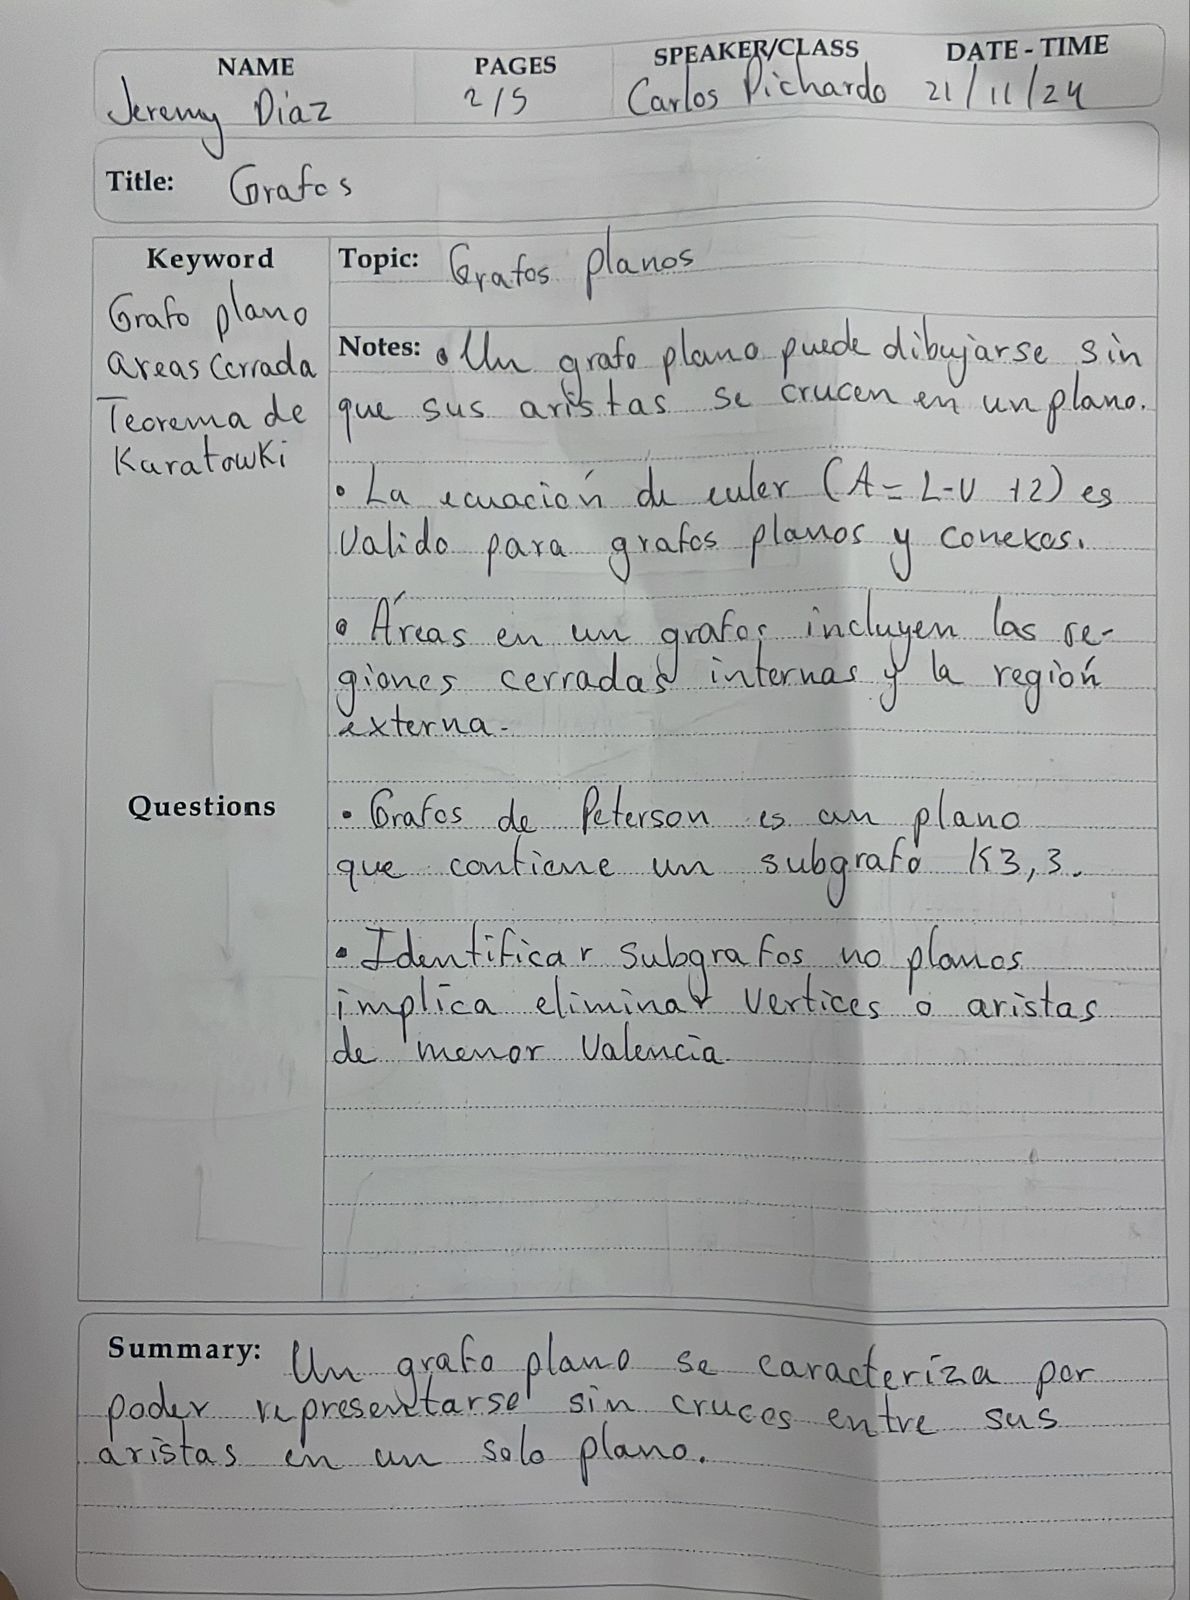 NAME PAGES SPEAKER/CLASS DATE - TIME
Jeremy Diaz 2/5 Carlos Pichardo 21/11/24
Title: Grafos
Keyword
Grafo plano
areas Cerrada
Teorema de
Karatowki
Topic: Grafos planos
Notes: • Un grafo plano puede dibujarse sin
que sus aristas se crucen en un plano.
• La ecuación de euler (A = L-V +2) es
Valido para grafos planos y conexos.
• Áreas en un grafos incluyen las re-
giones cerradas internas y la región
externa.
Questions
• Grafos de Peterson es un plano
que contiene un subgrafo K3,3.
• Identificar subgrafos no planos
implica eliminar vertices o aristas
de menor Valencia.
Summary: Un grafo plano se caracteriza por
poder representarse sin cruces entre sus
aristas en un solo plano.